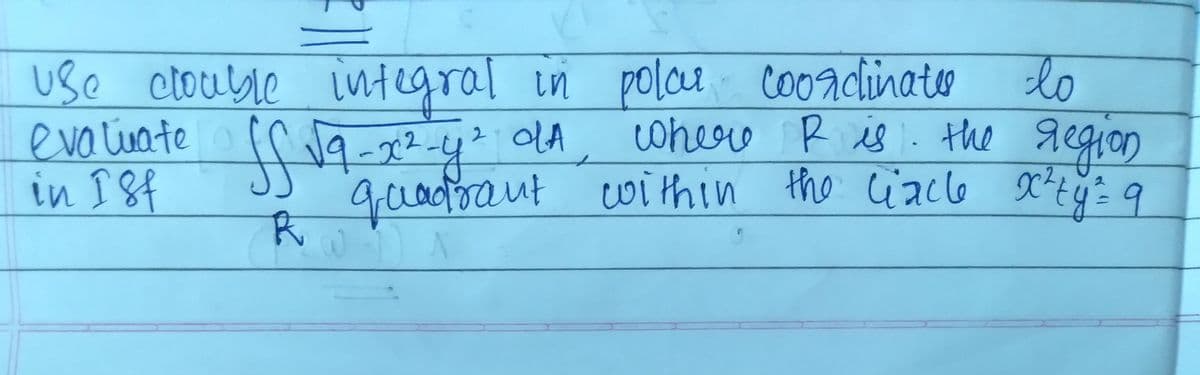 Use double integral in polar coordinates to
evaluate ∬ √9-x²-y² dA, where R is. the region
in Ist R quadrant within the circle x²+y²=9